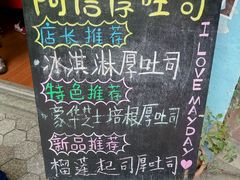 阿信厚吐司
店长推荐
冰淇淋厚吐司
特色推荐
豪华芝士培根厚吐司
新品推荐
榴莲起司厚吐司
I LOVE MAYDAY